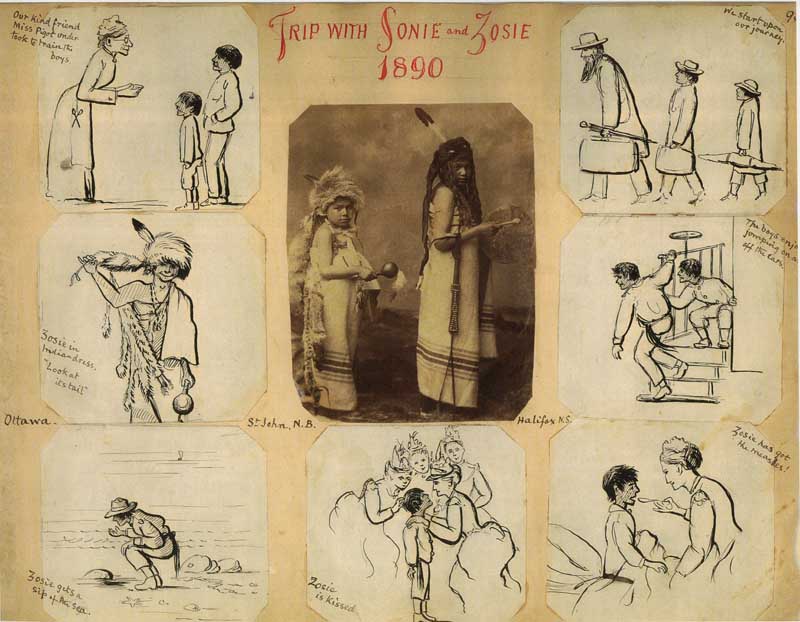 TRIP WITH SONIE and ZOSIE
1890
Our kind friend
Miss Pigot under
took to train the
boys
We start upon
our journey.
9
Zosie in
Indian dress.
"Look at
its tail"
The boys enjoy
jumping on a
off the cars
Ottawa.
St John, N.B.
Halifax N.S.
Zosie gets a
sip of the sea.
Zosie
is kissed
Zosie has got
the measles!